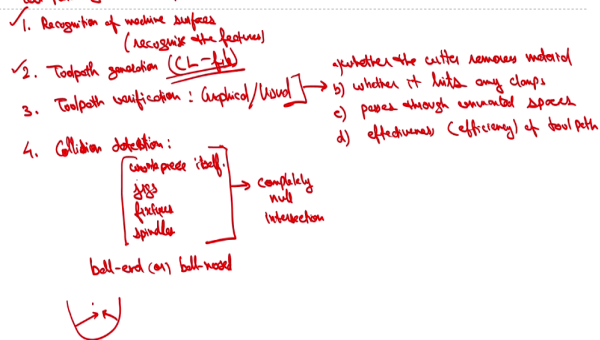 1. Recognition of machine surfaces
(recognise the features)
2. Toolpath generation (CL-file)
3. Toolpath verification : Graphical/Visual
a) whether the cutter removes material
b) whether it hits any clamps
c) passes through unwanted spaces
d) effectiveness (efficiency) of tool path
4. Collision detection :
workpiece itself.
jigs
fixtures
spindles
completely
null
intersection
ball-end (or) ball-nosed